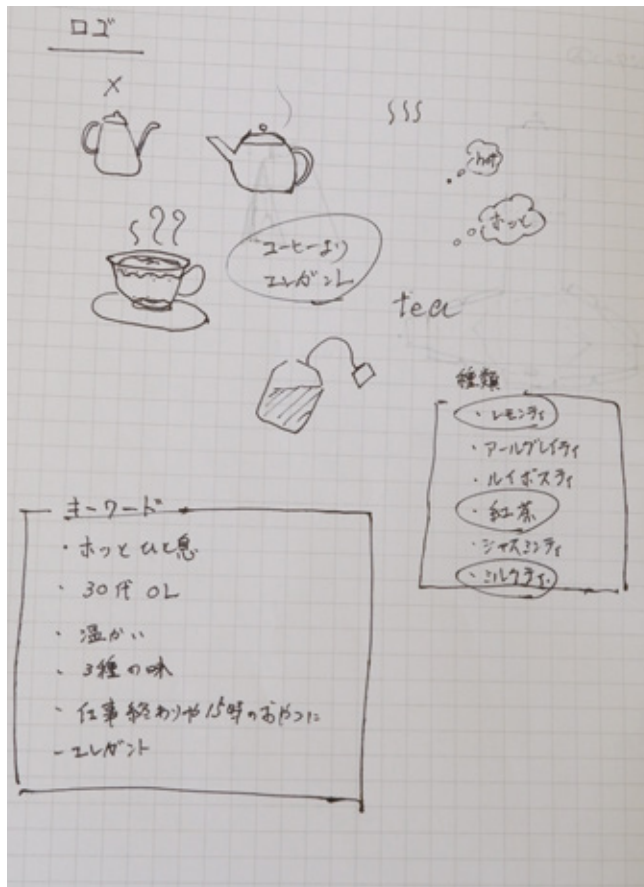 ロゴ
×
ホッと
コーヒーより
エレガント
tea
種類
・レモンティ
・アールグレイティ
・ルイボスティ
・紅茶
・ジャスミンティ
・ミルクティ
キーワード
・ホッとひと息
・30代 OL
・温かい
・3種の味
・仕事終わりや15時のおやつに
-エレガント